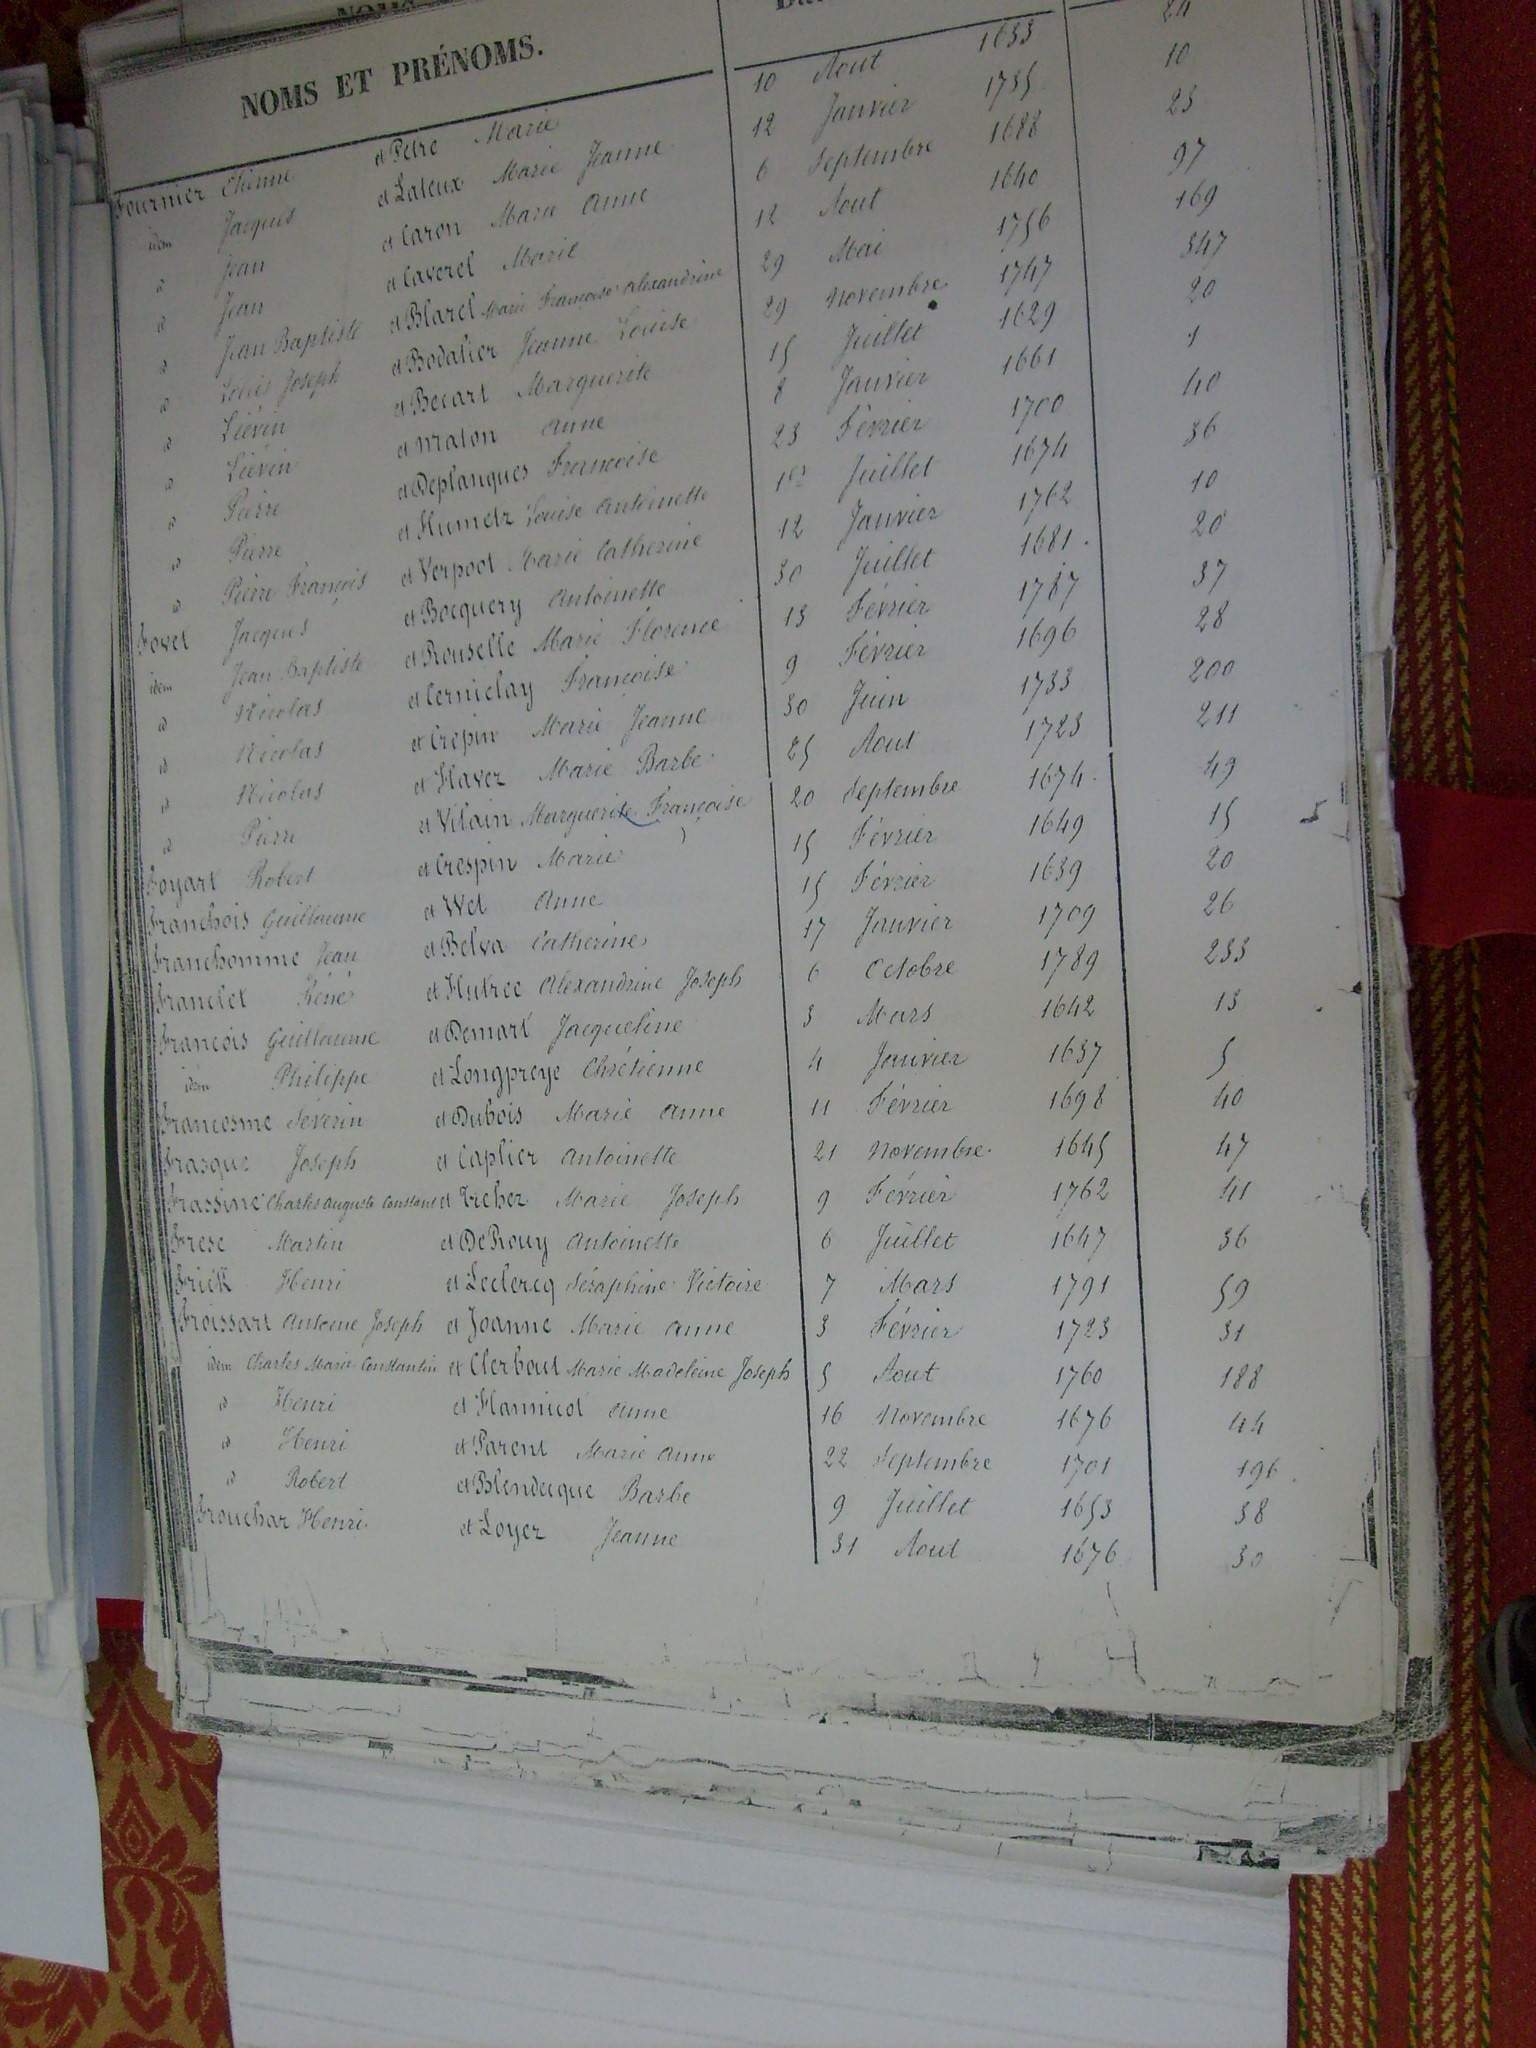 NOMS
NOMS ET PRÉNOMS.
Fournier Etienne et Petre Marie 10 Aout 1633 24
idem Jacques et Lateux Marie Jeanne 12 Janvier 1735 10
id Jean et Caron Marie Anne 6 Septembre 1688 23
id Jean et Caverel Marie 12 Aout 1640 97
id Jean Baptiste et Blarel Marie Françoise Alexandrine 29 Mai 1756 169
id Louis Joseph et Bodatier Jeanne Louise 29 Novembre 1747 347
id Liévin et Becart Marguerite 15 Juillet 1629 20
id Liévin et Maton Anne 8 Janvier 1661 1
id Pierre et Deplanques Françoise 23 Février 1700 40
id Pierre et Humetz Louise Antoinette 1er Juillet 1674 36
id Pierre François et Verpoot Marie Catherine 12 Janvier 1762 10
Fovel Jacques et Bocquery Antoinette 30 Juillet 1681 20
idem Jean Baptiste et Rouselle Marie Florence 13 Février 1787 37
id Nicolas et Cerniclay Françoise 9 Février 1696 28
id Nicolas et Crepin Marie Jeanne 30 Juin 1733 200
id Nicolas et Havez Marie Barbe 25 Aout 1723 211
id Pierre et Vilain Marguerite Françoise 20 Septembre 1674 49
Foyart Robert et Crespin Marie 15 Février 1649 15
Franchois Guillaume et Wet Anne 15 Février 1639 20
Franchomme Jean et Belva Catherine 17 Janvier 1709 26
Franclet Réné et Hutree Alexandrine Joseph 6 Octobre 1789 233
François Guillaume et Demart Jacqueline 3 Mars 1642 13
idem Philippe et Longpreye Chrétienne 4 Janvier 1637 5
Francosme Séverin et Dubois Marie Anne 11 Février 1698 40
Frasque Joseph et Caplier Antoinette 21 Novembre 1645 47
Frassine Charles Auguste Constant et Trehez Marie Joseph 9 Février 1762 41
Frese Martin et DeRouy Antoinette 6 Juillet 1647 36
Frick Henri et Leclercq Séraphine Victoire 7 Mars 1791 59
Froissart Antoine Joseph et Joanne Marie Anne 3 Février 1723 31
idem Charles Marie Constantin et Clerbout Marie Madeleine Joseph 5 Aout 1760 188
id Henri et Hannicot Anne 16 Novembre 1676 44
id Henri et Parent Marie Anne 22 Septembre 1701 196
id Robert et Blendecque Barbe 9 Juillet 1653 38
Frouchar Henri et Loyez Jeanne 31 Aout 1676 30